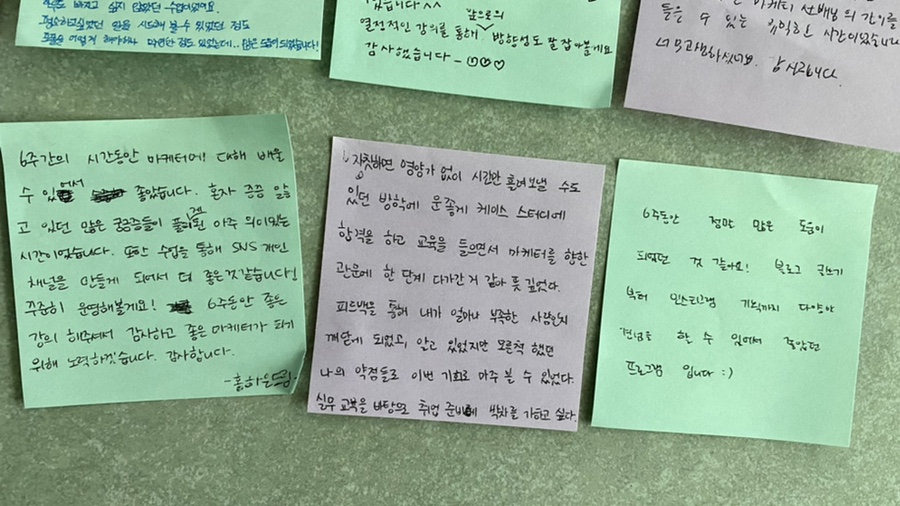 싶지 않았던 수업이었어요.
평소하고싶었던 일을 시도해 볼 수 있었던 점도
도움이 되었습니다!
열정적인 강의를 통해 앞으로의 방향성도 잘 잡아볼게요
감사했습니다 -
마케터 선배님의 강의를
들을 수 있는 유익한 시간이었습니다
너무 고생하셨어요. 감사합니다
6주간의 시간동안 마케터에 대해 배울
수 있어서 좋았습니다. 혼자 끙끙 앓
고 있던 많은 궁금증들이 풀리게 된 아주 의미있는
시간이었습니다. 또한 수업을 통해 SNS 개인
채널을 만들게 되어서 더 좋은것같습니다!
꾸준히 운영해볼게요! 6주동안 좋은
강의 해주셔서 감사하고 좋은 마케터가 되기
위해 노력하겠습니다. 감사합니다.
자칫하면 영양가 없이 시간만 흘려보낼 수도
있던 방학에 운좋게 케이스 스터디에
합격을 하고 교육을 들으면서 마케터를 향한
관문에 한 단계 다가간 거 같아 뜻 깊었다.
피드백을 통해 내가 얼마나 부족한 사람인지
깨닫게 되었고, 알고 있었지만 모른척 했던
나의 약점들로 이번 기회로 마주 볼 수 있었다.
실무 교육을 바탕으로 취업 준비에 박차를 가하고 싶다.
6주동안 정말 많은 도움이
되었던 것 같아요! 블로그 글쓰기
부터 인스타그램 기획까지 다양한
경험을 할 수 있어서 좋았던
프로그램 입니다 :)